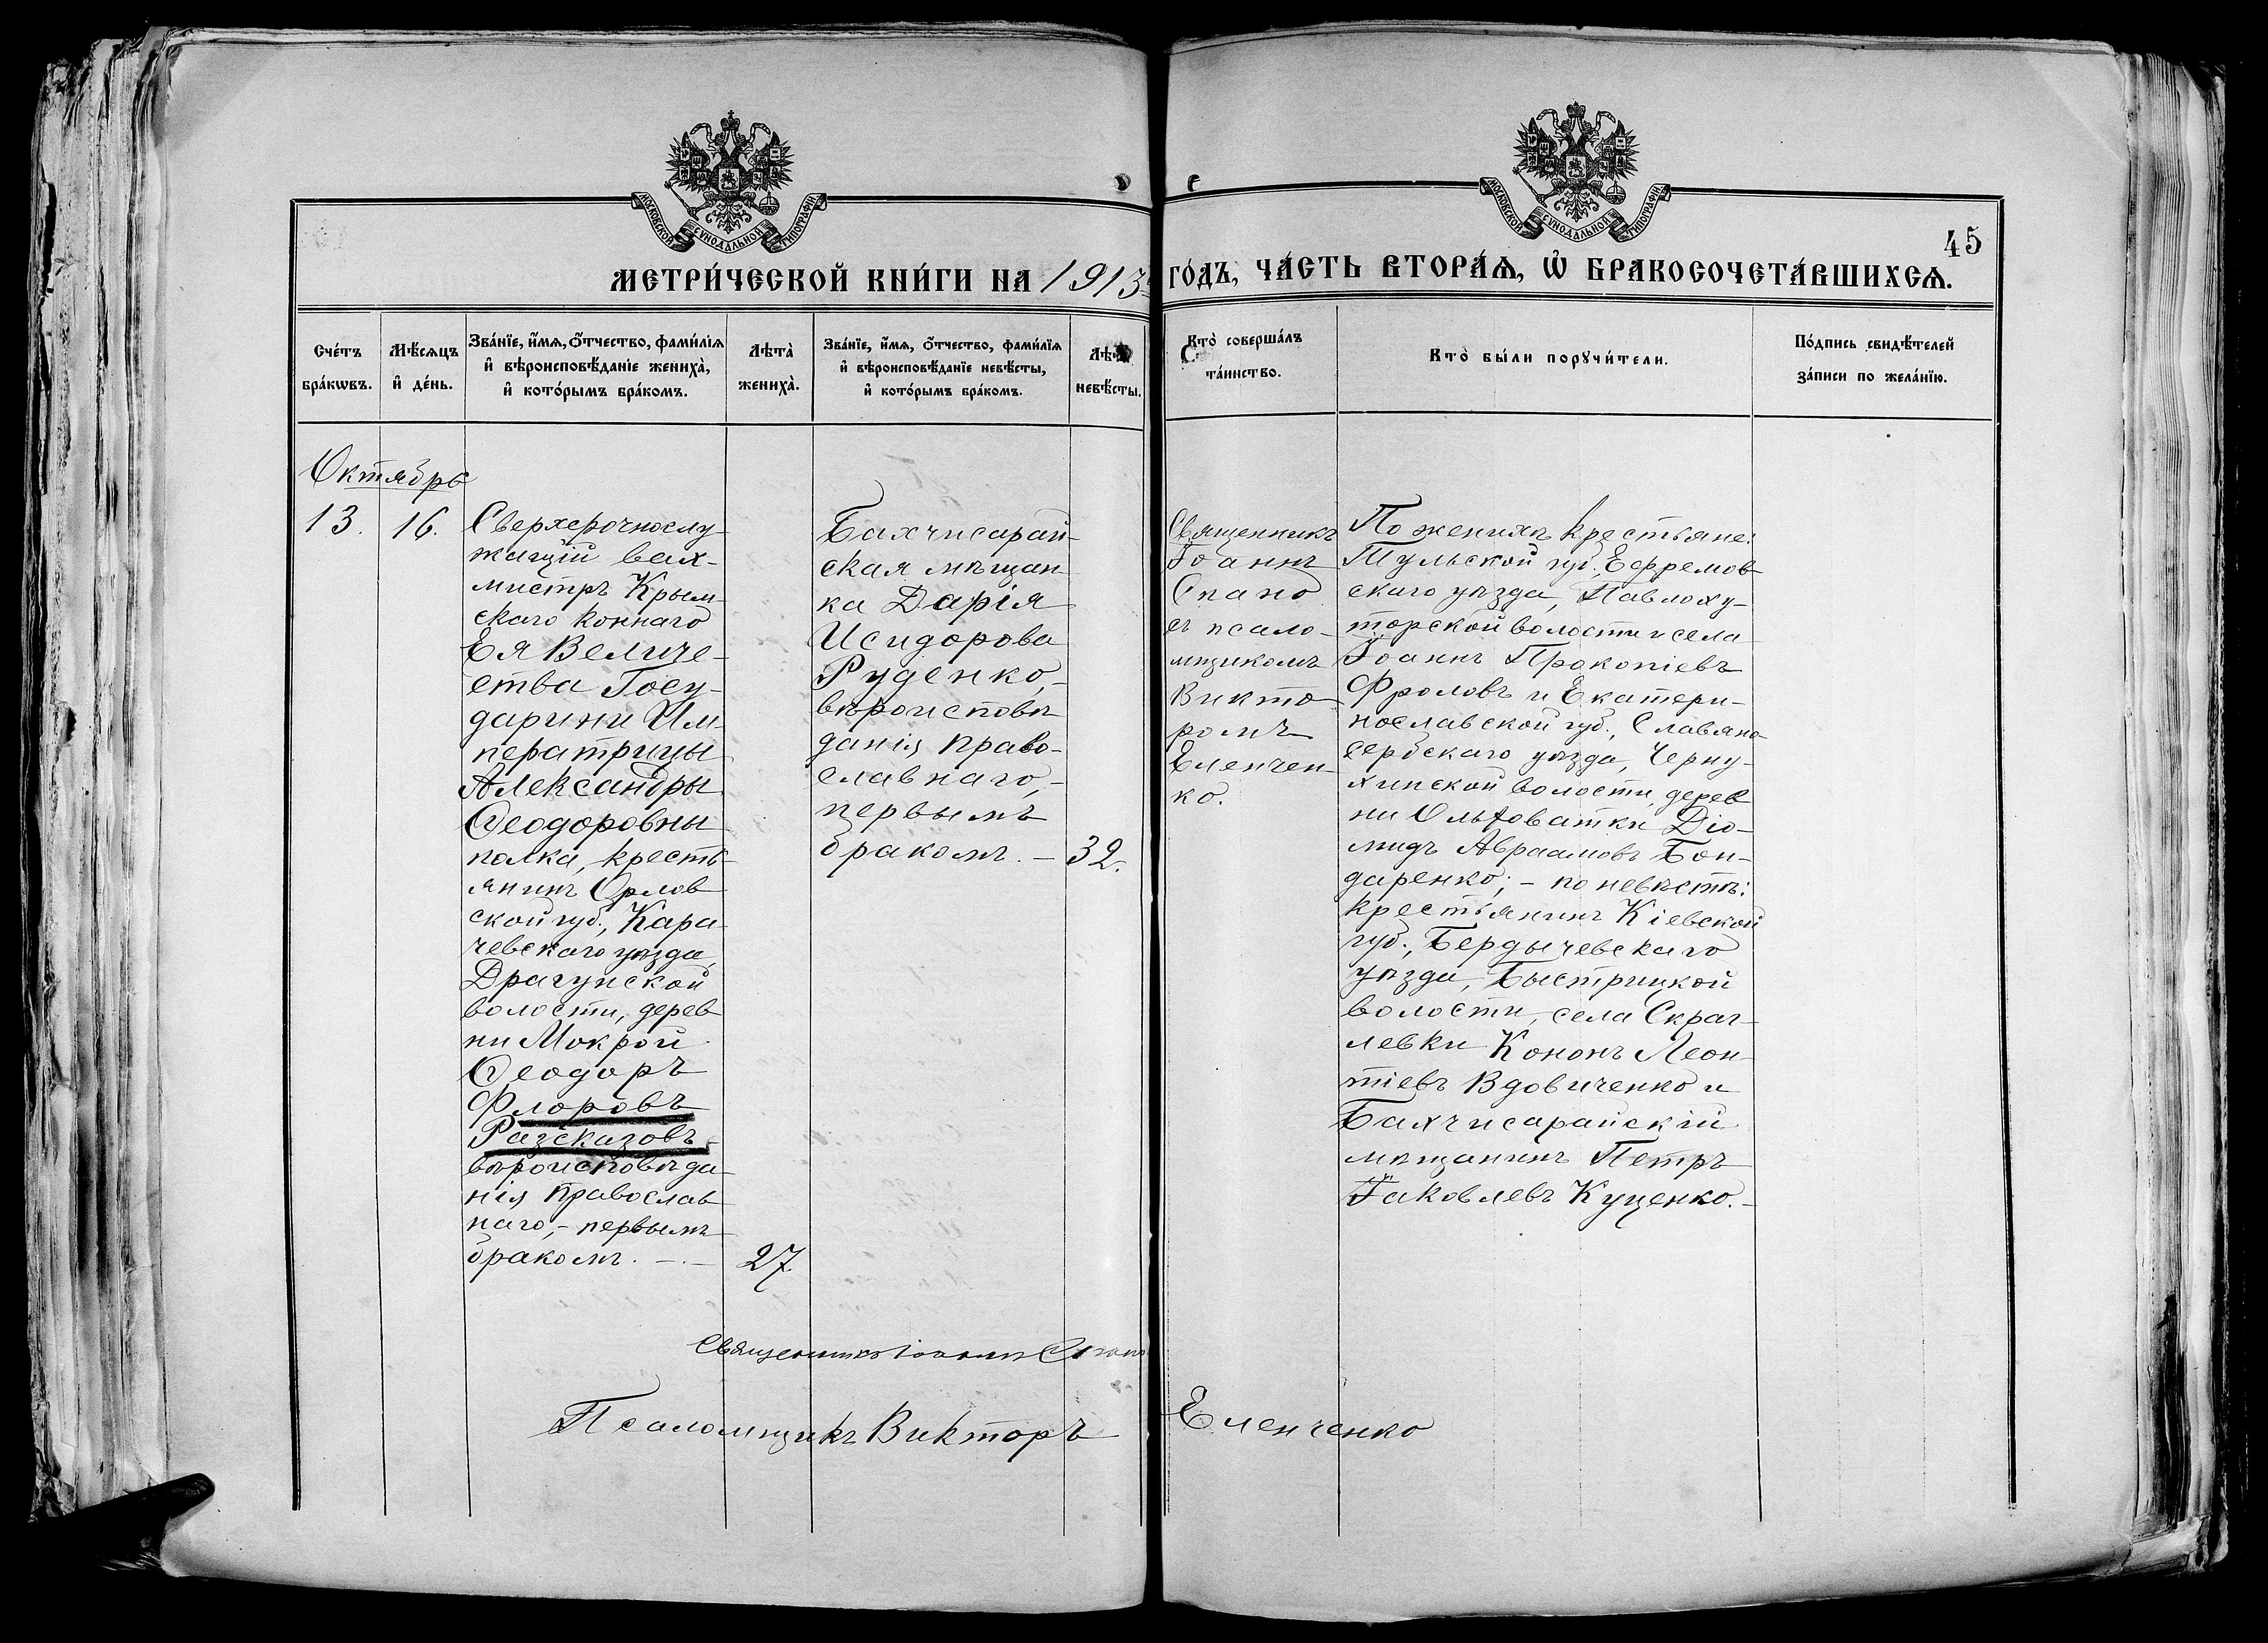 МОСКОВСКОЙ СУНОДАЛЬНОЙ ТИПОГРАФІИ
МОСКОВСКОЙ СУНОДАЛЬНОЙ ТИПОГРАФІИ
45
МЕТРИ́ЧЕСКОЙ КНИ́ГИ НА 1913й ГО́ДЪ, ЧА́СТЬ ВТОРА́Ѧ, Ѡ҆ БРАКОСОЧЕТА́ВШИХСѦ.
Сче́тъ
бра́кѡвъ.
Мѣ́сѧцъ
и҆ де́нь.
Зва́нїе, и҆́мѧ, ѻ҆́тчество, фами́лїѧ
и҆ вѣроисповѣ́данїе жениха̀,
и҆ кото́рымъ бра́комъ.
Лѣта̀
жениха̀.
Зва́нїе, и҆́мѧ, ѻ҆́тчество, фами́лїѧ
и҆ вѣроисповѣ́данїе невѣ́сты,
и҆ кото́рымъ бра́комъ.
Лѣта̀
невѣ́сты.
Кто̀ соверша́лъ
та́инство.
Кто̀ бы́ли порꙋчи́тели.
По́дпись свидѣ́телей
за́писи по жела́нїю.
Октябрь
13.
16.
Сверхсрочнослу
жащій вах-
мистръ Крым-
скаго коннаго
Ея Величе-
ства Госу-
дарыни Им-
ператрицы
Александры
Ѳеодоровны
полка, кресть-
янинъ Орлов
ской губ., Кара
чевскаго уѣзда,
Драгунской
волости, дерев
ни Мокрой
Ѳеодоръ
Флоровъ
Разсказовъ,
вѣроисповѣда
нія православ
наго,- первымъ
бракомъ. -.-
27.
Бахчисарай-
ская мѣщан
ка Дарія
Исидорова
Руденко,-
вѣроисповѣ
данія право-
славнаго,-
первымъ
бракомъ. -
32.
Священникъ
Іоаннъ
Спано
съ псало-
мщикомъ
Викто
ромъ
Еленчен-
ко.
По женихѣ крестьяне:
Тульской губ., Ефремов
скаго уѣзда, Павлоху-
торской волости и села
Іоаннъ Прокопіевъ
Фроловъ и Екатери-
нославской губ., Славяно
сербскаго уѣзда, Черну-
хинской волости, дерев
ни Ольховатки Діо-
мидъ Авраамовъ Бон-
даренко; - по невѣстѣ:
крестьянинъ Кіевской
губ., Бердычевскаго
уѣзда, Быстрицкой
волости, села Скраг-
левки Кононъ Леон-
тіевъ Вдовиченко и
Бахчисарайскій
мѣщанинъ Петръ
Іаковлевъ Куценко.-
Священникъ Іоаннъ Спано
Псаломщикъ Викторъ Еленченко